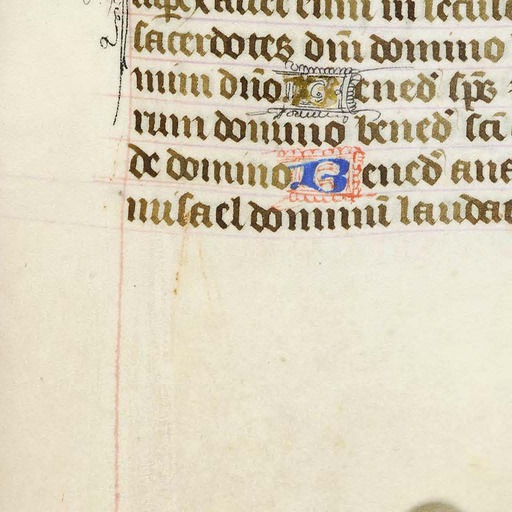 superexaltet eum in secula
sacerdotes dm̄ domino
mum dn̄o Bened̄ sp̄s
rum domino bened̄ sc̄i
de domino Bened̄ ana
misael dominum̄ laudat